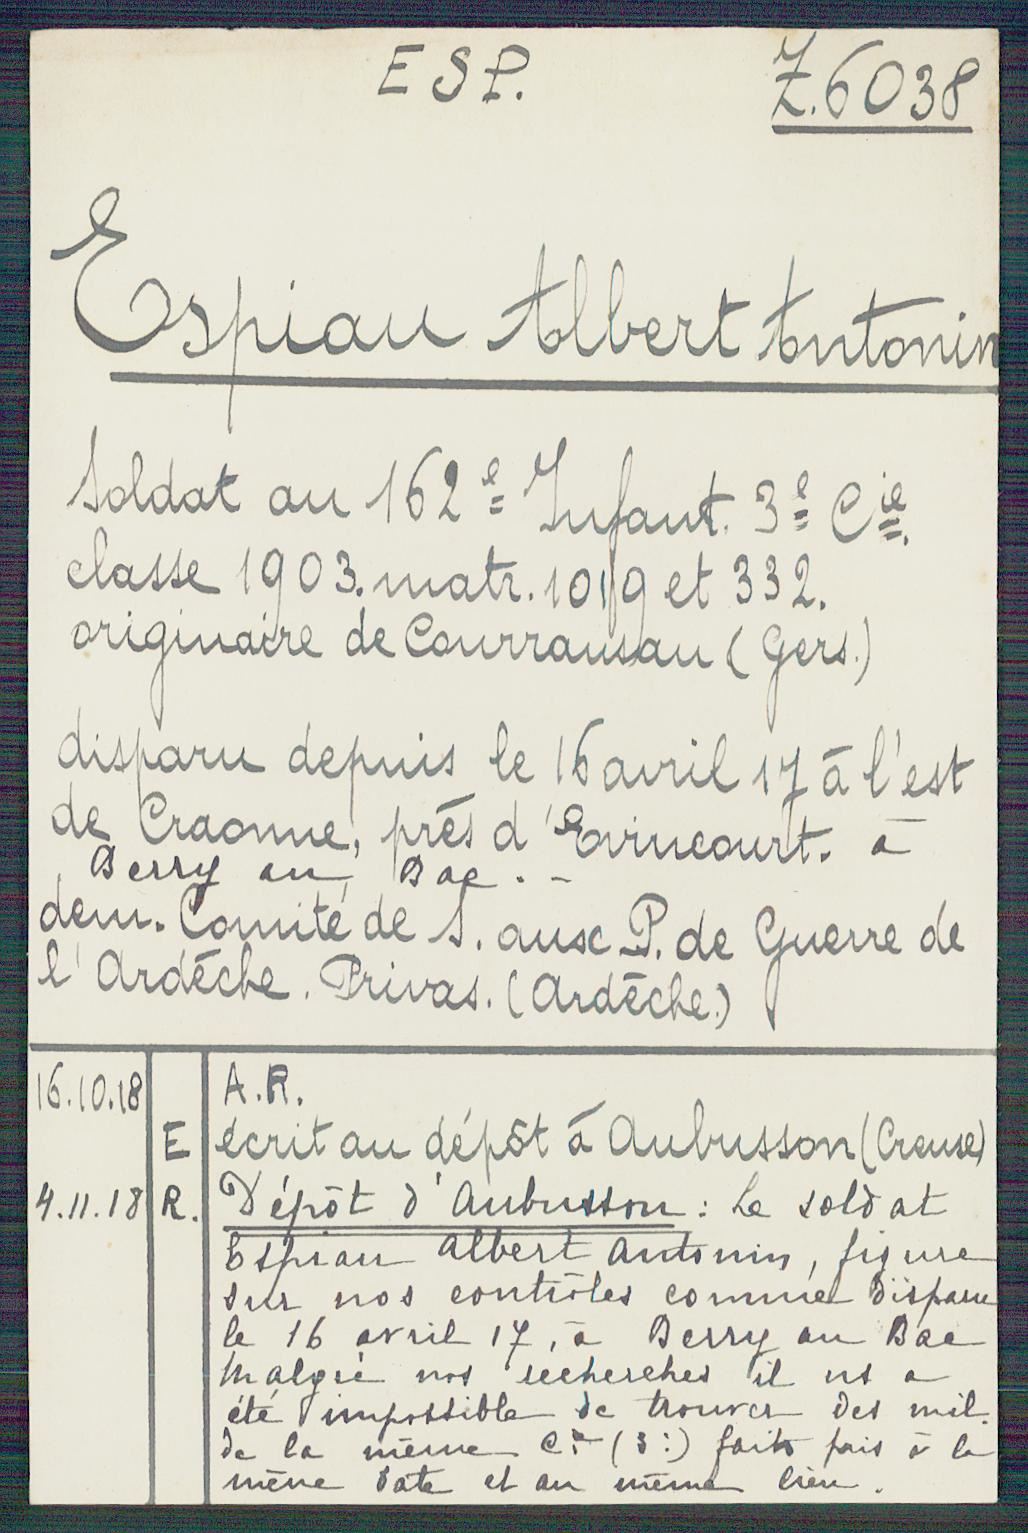 ESP.
Z.6038
Espiau Albert Antonin
Soldat au 162e Infant. 3e Cie.
classe 1903. matr. 1019 et 332.
originaire de Courransau (Gers.)
disparu depuis le 16 avril 17 à l'est
de Craonne, près d'Evincourt. à
Berry au Bac. -
dem. Comité de S. aux P. de Guerre de
l'Ardèche. Privas. (Ardèche.)
16.10.18 A.R.
E écrit au dépôt à Aubusson (Creuse)
4.11.18 R. Dépôt d'Aubusson : Le soldat
Espiau Albert Antonin, figure
sur nos contrôles comme disparu
le 16 avril 17, à Berry au Bac
Malgré nos recherches il ns a
été impossible de trouver des mil.
de la même Cie (3e) faits pris à la
même date et au même lieu.